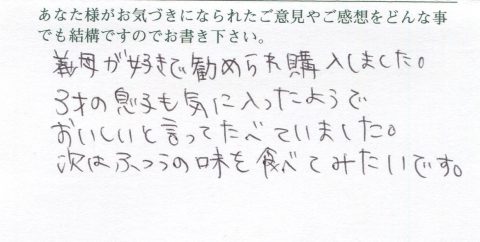 あなた様がお気づきになられたご意見やご感想をどんな事
でも結構ですのでお書き下さい。
義母が好きで勧められ購入しました。
3才の息子も気に入ったようで
おいしいと言ってたべていました。
次はふつうの味を食べてみたいです。